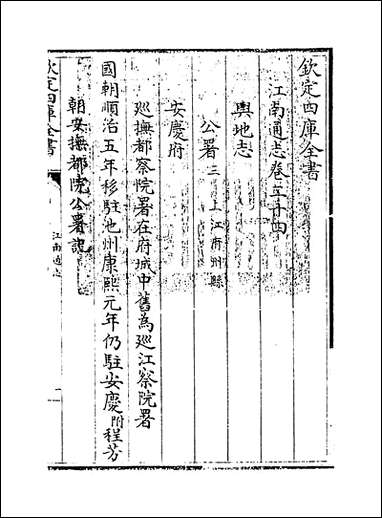 欽定四庫全書
江南通志卷二十四
輿地志
公署三 上江府州縣
安慶府
巡撫都察院署在府城中舊為巡江察院署
國朝順治五年移駐池州康熙元年仍駐安慶附程芳
朝安撫都院公署記
欽定四庫全書 江南通志 一